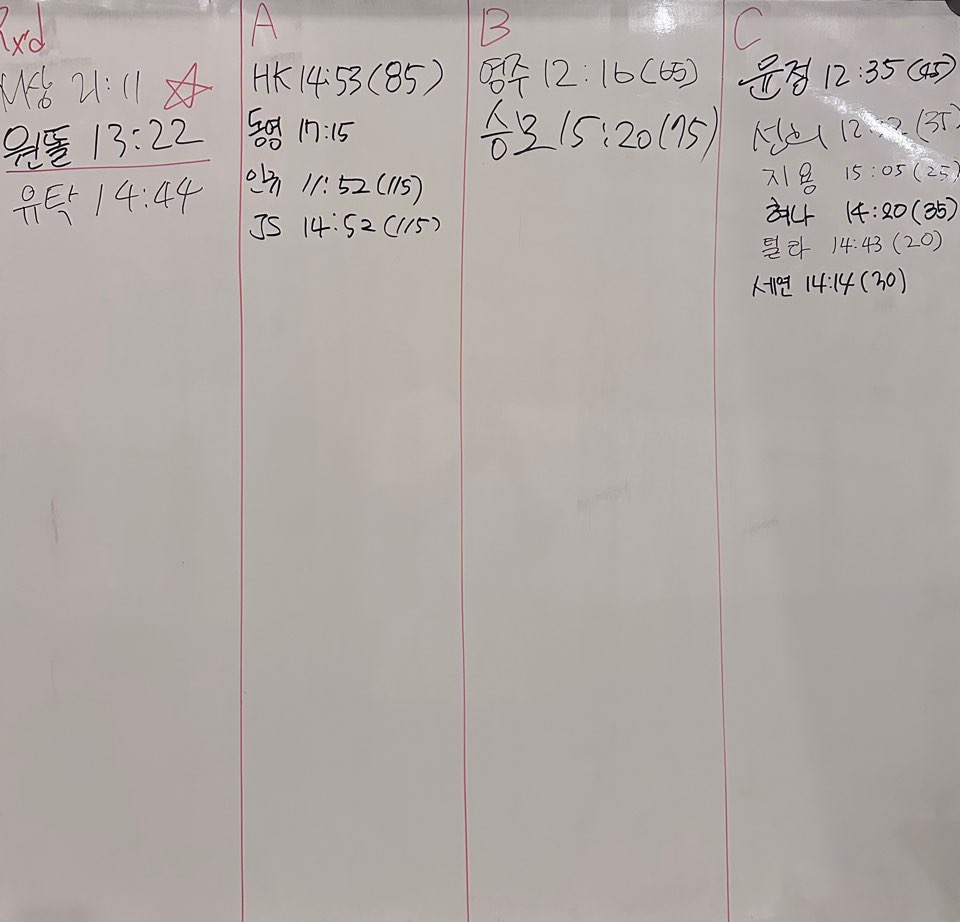 Rx'd
사장 21:11
원똘 13:22
유탁 14:44
A
HK 14:53 (85)
동영 17:15
인규 11:52 (115)
JS 14:52 (115)
B
영주 12:16 (65)
승모 15:20 (75)
C
윤정 12:35 (45)
(35)
지용 15:05 (25)
혀나 14:20 (35)
털라 14:43 (20)
세연 14:14 (30)